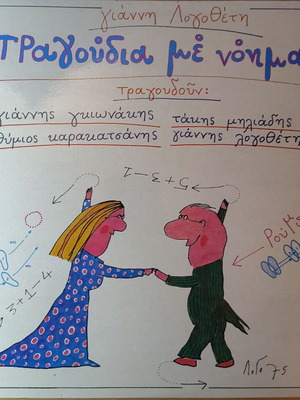 γιάννη Λογοθέτη
τραγούδια μὲ νόημα
τραγουδοῦν:
γιάννης γκιωνάκης τάκης μηλιάδης
θύμιος καρακατσάνης γιάννης λογοθέτη
5+3-1
3+1-4
Λογο 75